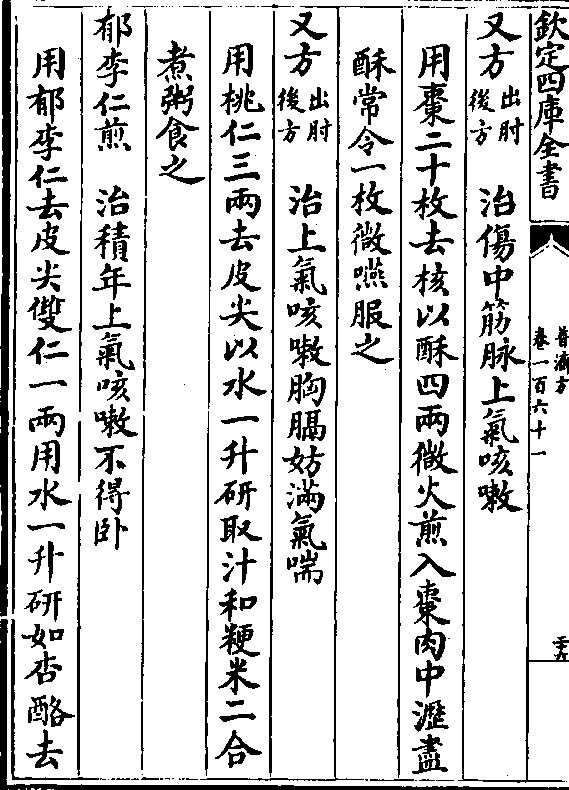 欽定四庫全書
普濟方
卷一百六十一
又方出肘後方 治傷中筋脉上氣咳嗽
用棗二十枚去核以酥四兩微火煎入棗肉中瀝盡
酥常令一枚微嚥服之
又方出肘後方 治上氣咳嗽胸膈妨滿氣喘
用桃仁三兩去皮尖以水一升研取汁和粳米二合
煮粥食之
郁李仁煎 治積年上氣咳嗽不得卧
用郁李仁去皮尖雙仁一兩用水一升研如杏酪去